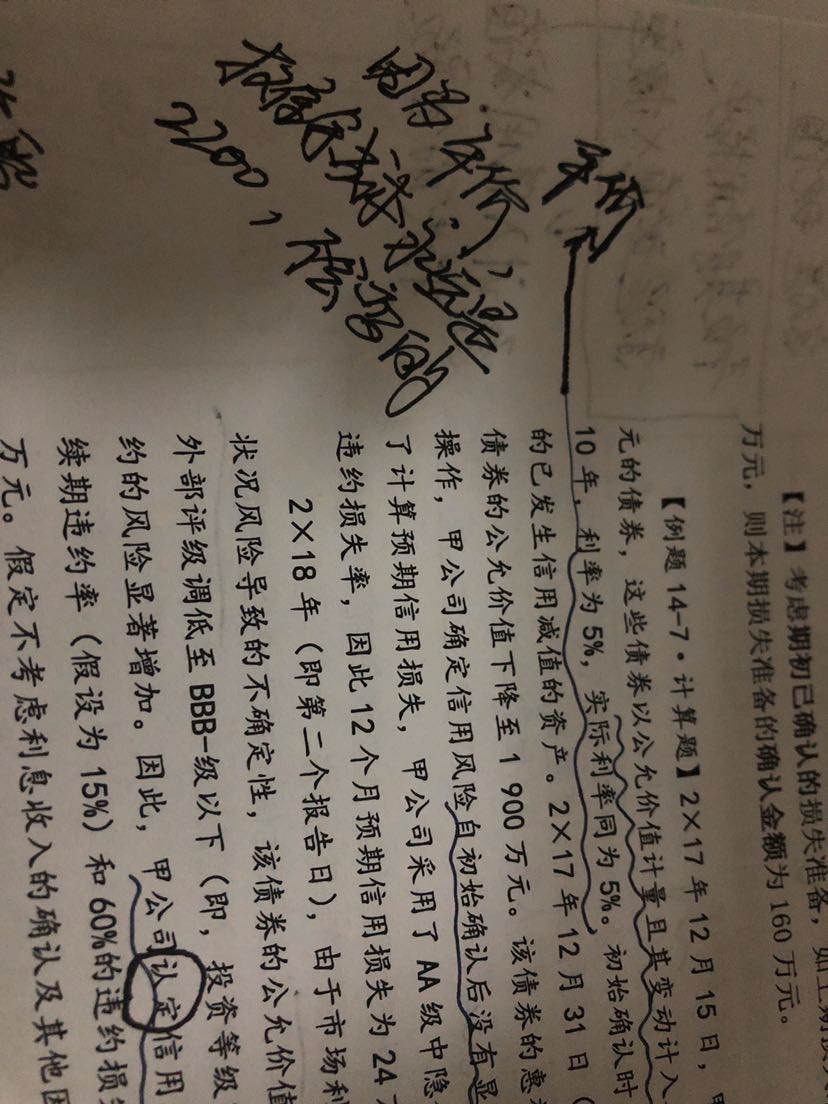 【注】考虑期初已确认的损失准备，如上期
万元，则本期损失准备的确认金额为 160 万元。
【例题 14-7·计算题】2×17 年 12 月 15 日，甲
元的债券，这些债券以公允价值计量且其变动计入
10 年，利率为 5%，实际利率同为 5%。初始确认时
的已发生信用减值的资产。2×17 年 12 月 31 日（
债券的公允价值下降至 1 900 万元。该债券的惠
操作，甲公司确定信用风险自初始确认后没有显
了计算预期信用损失，甲公司采用了 AA 级中隐
违约损失率，因此 12 个月预期信用损失为 24
2×18 年（即第二个报告日），由于市场利
状况风险导致的不确定性，该债券的公允价值
外部评级调低至 BBB-级以下（即，投资等级
约的风险显著增加。因此，甲公司认定信用
续期违约率（假设为 15%）和 60%的违约损
万元。假定不考虑利息收入的确认及其他因
平价
因为平价，
2200，